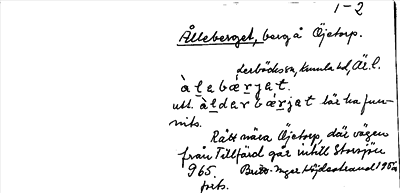 1-2
Ålleberget, berg å Öjetorp.
Lerbäcks sn, Kumla hd, Är. l.
àlabǽrjat.
utt. àldarbǽrjat lär ha fun-
nits.
Rätt nära Öjetorp, där vägen
från Tillfärd går intill Storsjön
965. Britt-Inger 1950
forts.